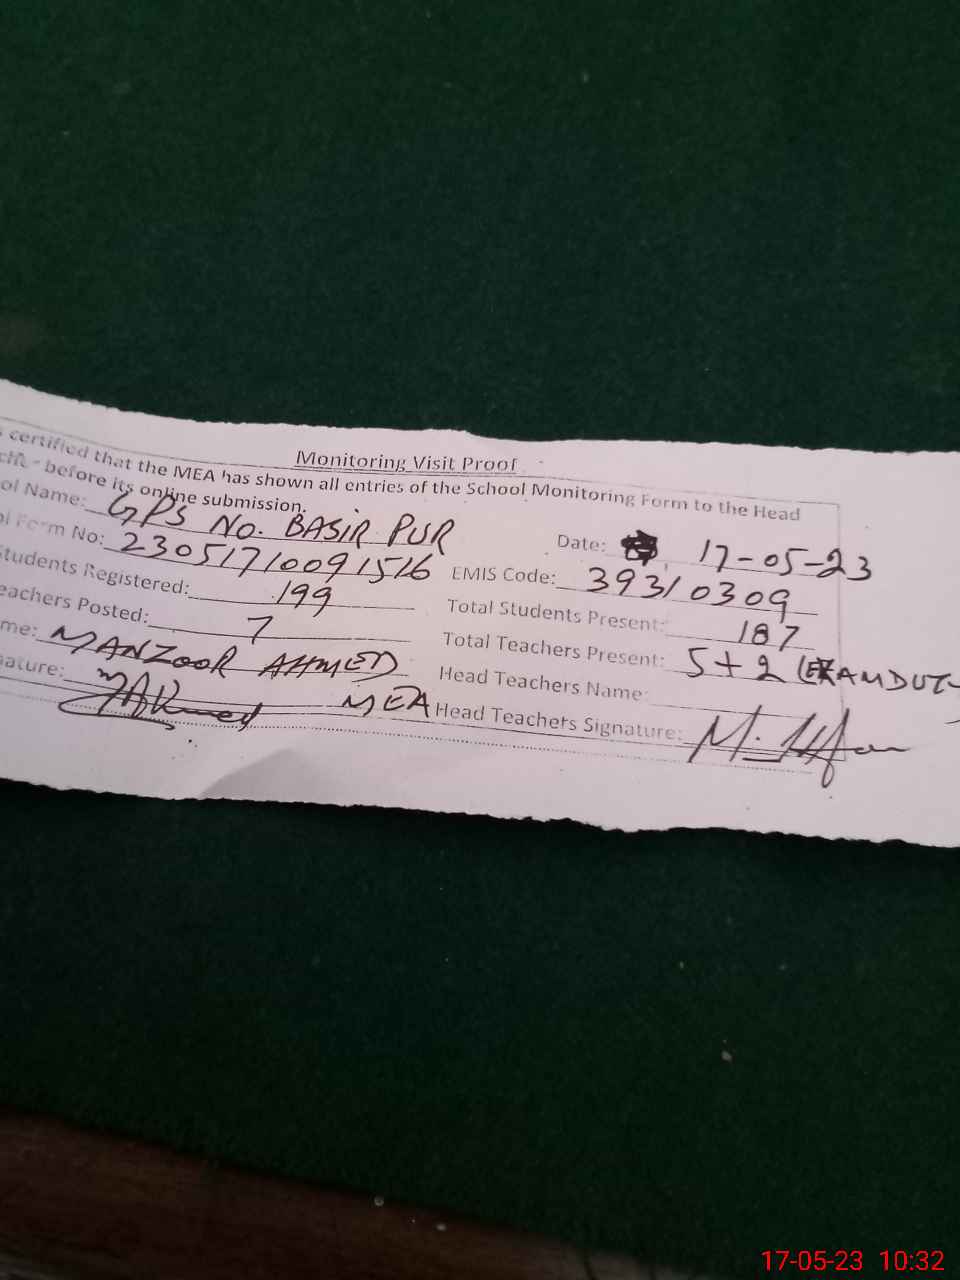 Monitoring Visit Proof
s certified that the MEA has shown all entries of the School Monitoring Form to the Head
before its online submission.
ol Name: GPS No. BASIR PUR
Date: 17-05-23
ol Form No: 23051710091516
EMIS Code: 39310309
Students Registered: 199
Total Students Present: 187
eachers Posted: 7
Total Teachers Present: 5+2 (EXAM DUTY
me: MANZOOR AHMED
Head Teachers Name:
nature: MEA
Head Teachers Signature:
17-05-23 10:32